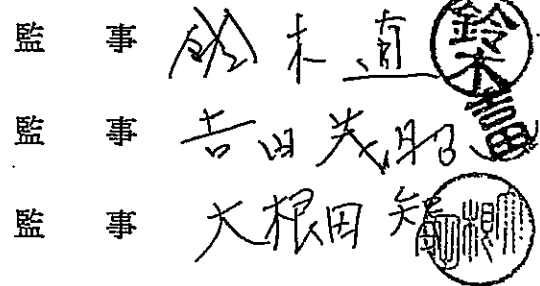 監事 鈴木直 鈴木
監事 吉田茂昭 吉田
監事 大根田